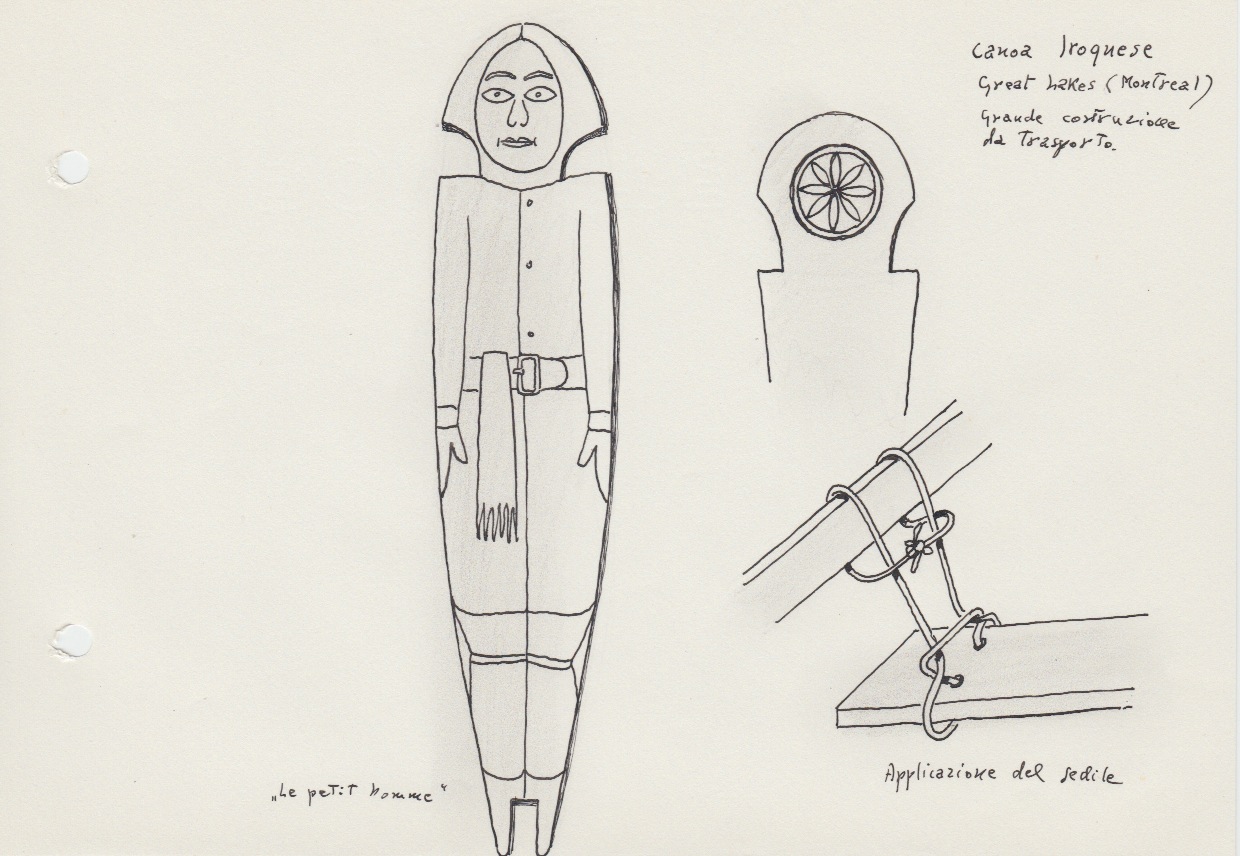 Canoa Iroquese
Great Lakes (Montreal)
Grande costruzione
da Trasporto.
„Le petit homme“
Applicazione del sedile